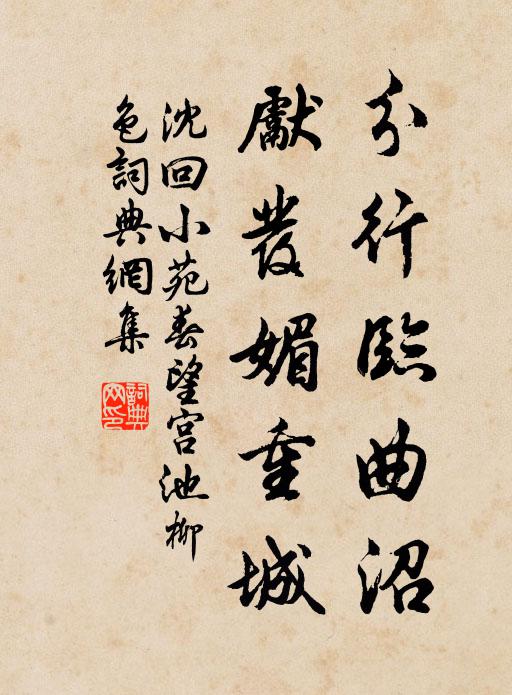 分行臨曲沼
獻發媚重城
沈回小苑春望宮池柳
色詞典網集
詞典網印